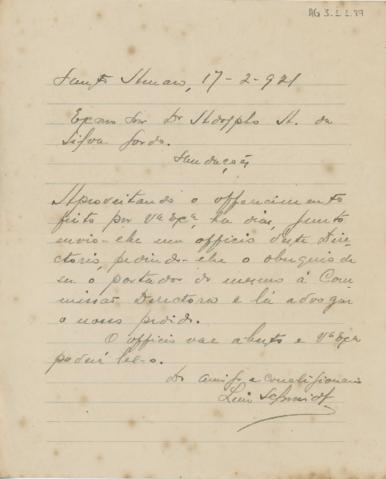 AG 3.1.1.97
Santo Amaro, 17-2-921
Exmo Snr Dr Adolpho A. da
Silva Gordo.
Saudações
Aproveitando o offerecimento
feito por Vª Exª, ha dias, junto
envio-lhe um officio deste Dire-
ctorio, pedindo-lhe o obsequio de
ser o portador do mesmo á Com-
missão Directora e lá advogar
o nosso pedido.
O officio vae aberto e Vª Exª
poderá lel-o.
Do amigo e correligionario
Luiz Schmidt